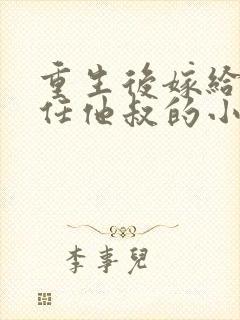 重生後嫁給
任他叔的小
李事兒